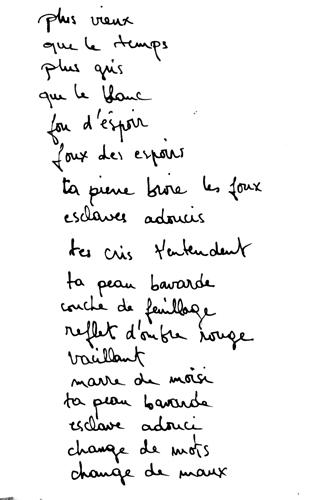 plus vieux
que le temps
plus gris
que le blanc
fou d'espoir
foux des espoirs
ta pierre broie les foux
esclaves adoucis
tes cris t'entendent
ta peau bavarde
couche de feuillage
reflet d'ombre rouge
vacillant
marre de moisi
ta peau bavarde
esclave adouci
change de mots
change de maux